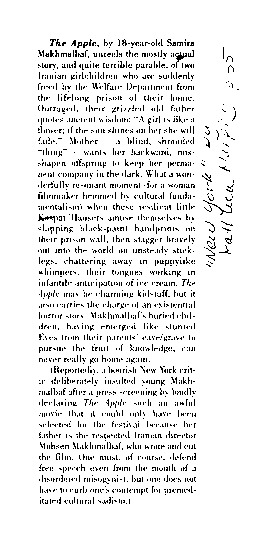 The Apple, by 18-year-old Samira
Makhmalbaf, unreels the mostly actual
story, and quite terrible parable, of two
Iranian girlchildren who are suddenly
freed by the Welfare Department from
the lifelong prison of their home.
Outraged, their grizzled old father
quotes ancient wisdom: "A girl is like a
flower; if the sun shines on her she will
fade." Mother – a blind, shrouded
"thing" – wants her backward, mis-
shapen offspring to keep her perma-
nent company in the dark. What a won-
derfully resonant moment (for a woman
filmmaker hemmed by cultural funda-
mentalism) when these resilient little
Kaspar Hausers amuse themselves by
slapping black-paint handprints on
their prison wall, then stagger bravely
out into the world on unsteady stick-
legs, chattering away in puppylike
whimpers, their tongues working in
infantile anticipation of ice cream. The
Apple may be charming kidstuff, but it
also carries the charge of an existential
horror story. Makhmalbaf's buried chil-
dren, having emerged like stunted
Eves from their parents' cave/grave to
pursue the fruit of knowledge, can
never really go home again.
(Reportedly, a boorish New York crit-
ic deliberately insulted young Makh-
malbaf after a press screening by loudly
declaring The Apple such an awful
movie that it could only have been
selected for the festival because her
father is the respected Iranian director
Mohsen Makhmalbaf, who wrote and cut
the film. One must, of course, defend
free speech even from the mouth of a
disordered misogynist, but one does not
have to curb one's contempt for premed-
itated cultural sadism.)
"New York"